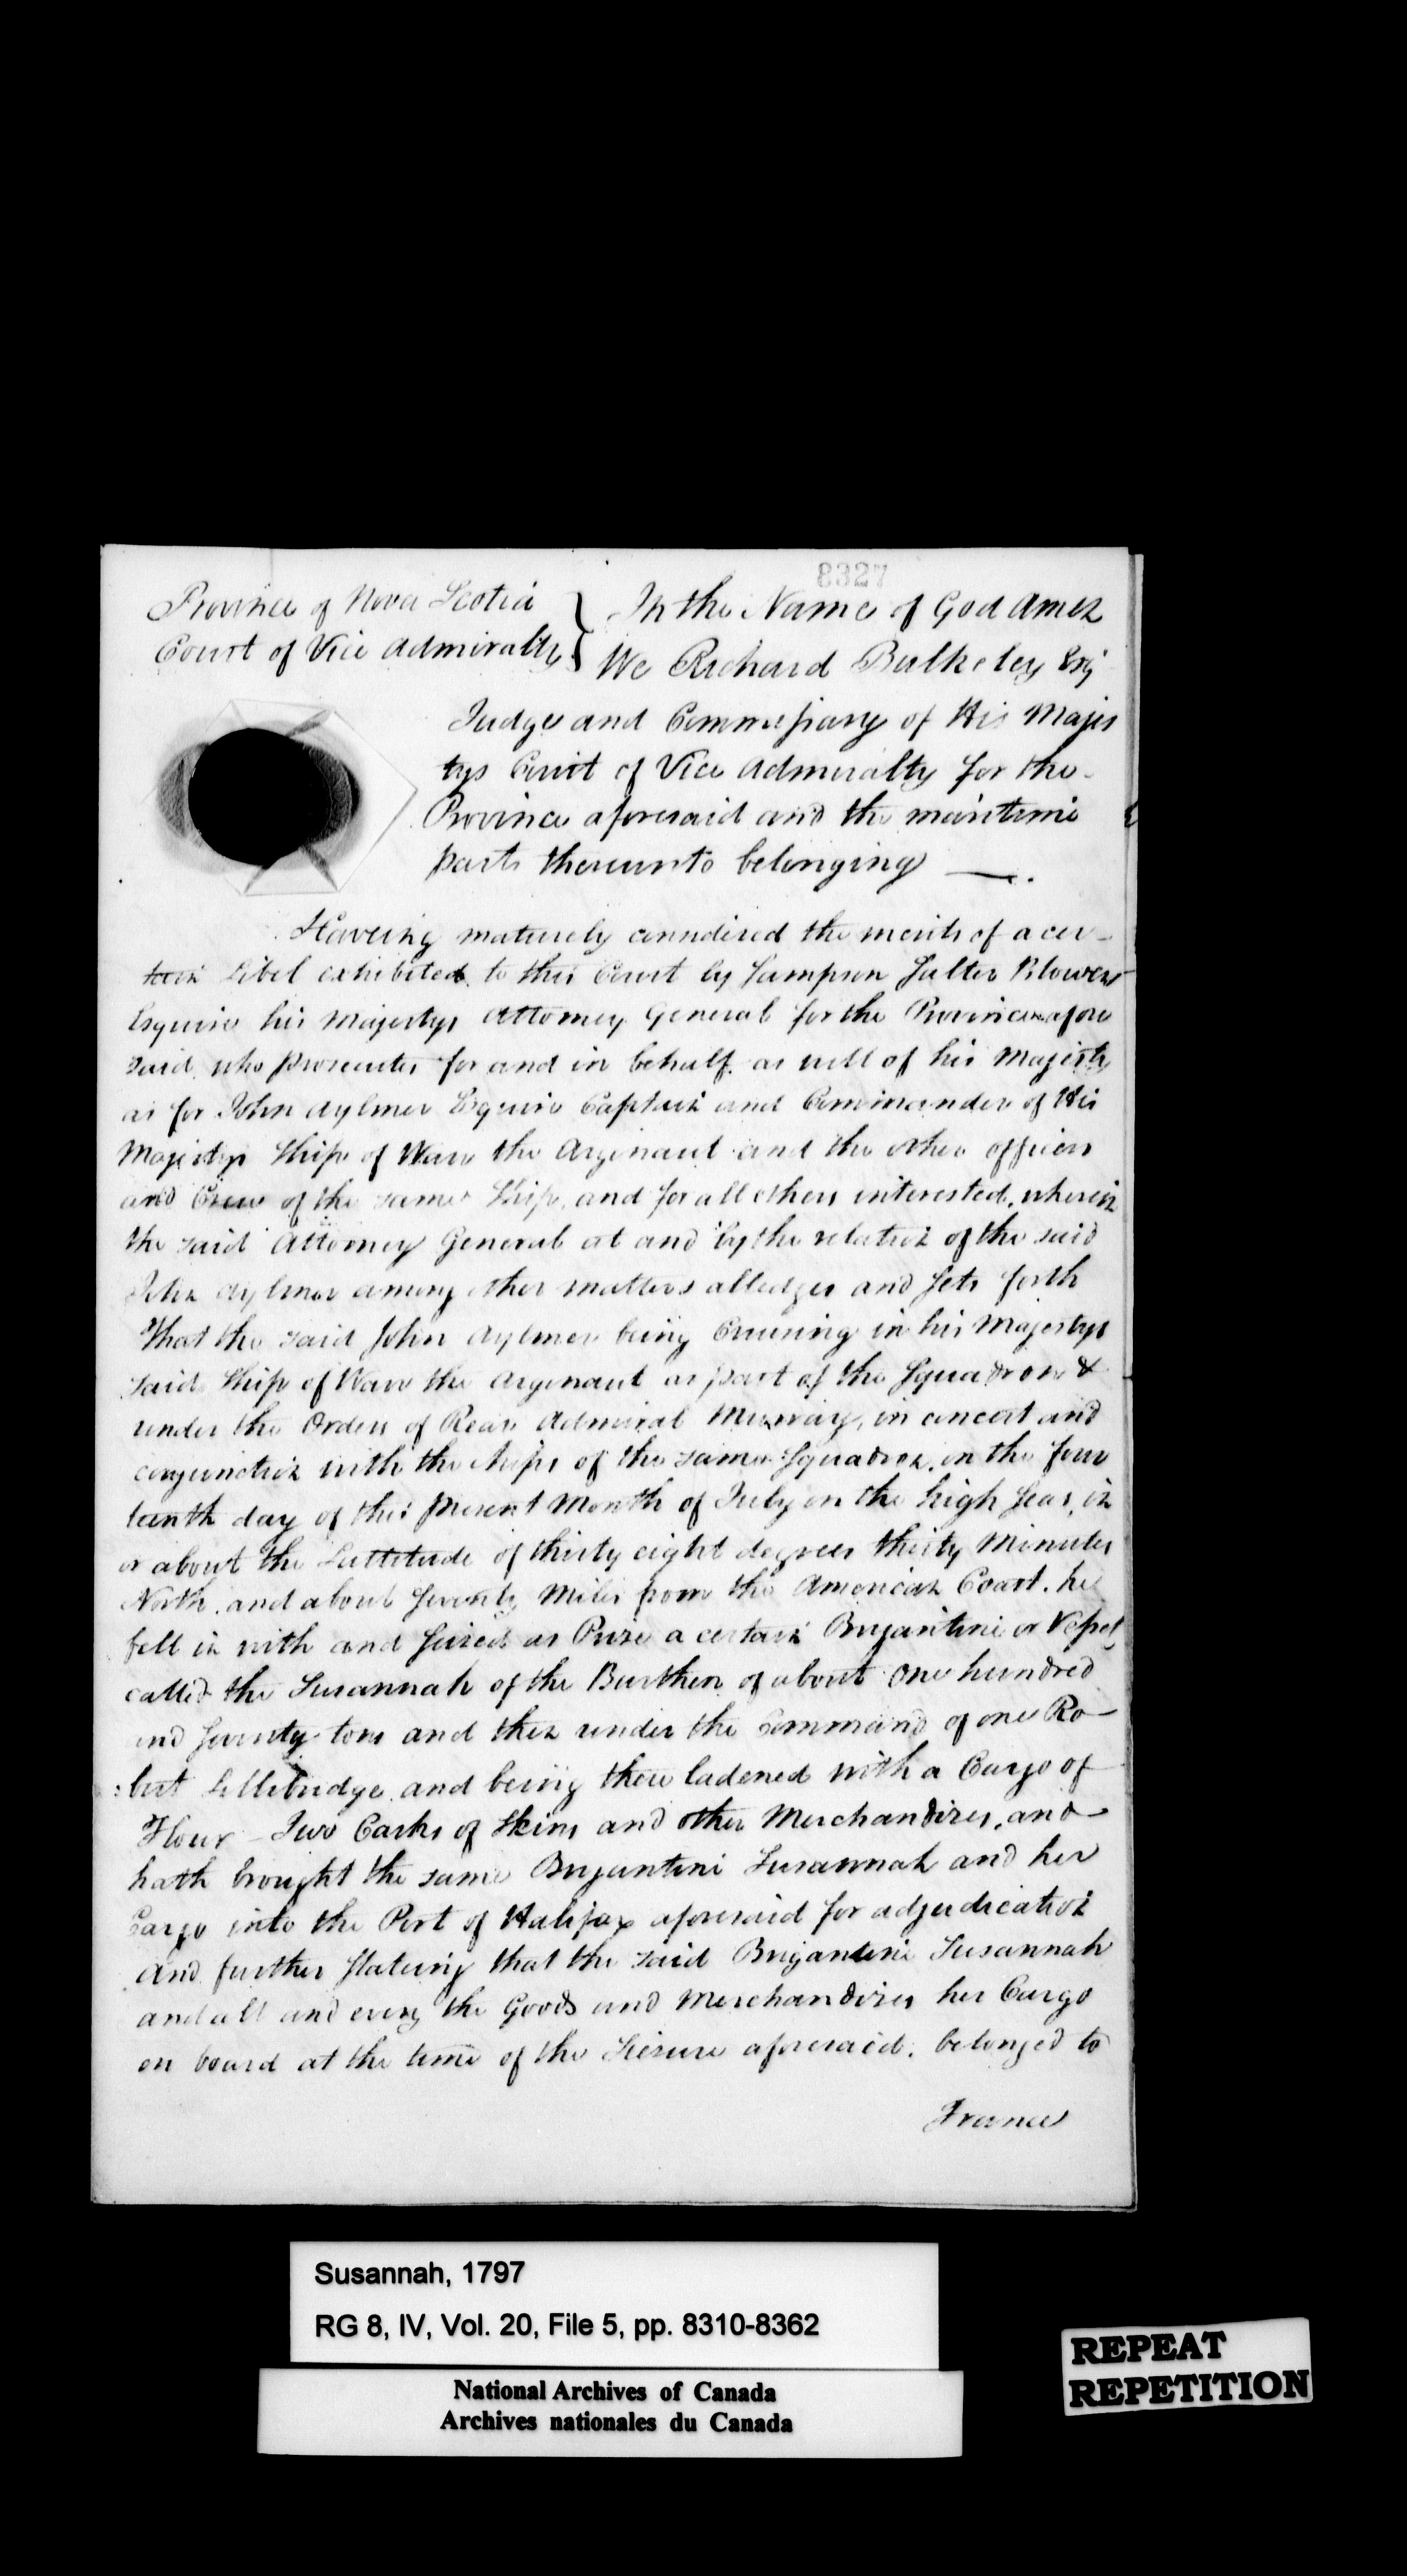 8327
Province of Nova Scotia
Court of Vice Admiralty
In the Name of God Amen
We Richard Bulkeley Esq
Judge and Commissary of His Majes
tys Court of Vice Admiralty for the
Province aforesaid and the maritime
parts thereunto belonging —.
Having maturely considered the merits of a cer-
tain Libel exhibited to this Court by Sampson Salter Blowers
Esquire his Majestys Attorney General for the Province afore
said who prosecutes for and in behalf as well of his Majesty
as for John Aylmer Esquire Captain and Commander of His
Majestys Ship of Warr the Argonaut and the other officers
and Crew of the same Ship, and for all others interested, wherein
the said Attorney General at and by the relation of the said
John Aylmer among other matters alledges and Sets forth
That the said John Aylmer being Cruising in his Majestys
said Ship of Warr the Argonaut as part of the Squadron &
under the Orders of Rear Admiral Murray, in concert and
conjunction with the Ships of the same Squadron, on the four
teenth day of this present Month of July on the high Seas, in
or about the Lattitude of thirty eight degrees thirty Minutes
North, and about Seventy Miles from the American Coast, he
fell in with and Seized as Prize a certain Brigantine or Vessel
called the Susannah of the Burthen of about One hundred
and Seventy tons and then under the Command of one Ro-
:bert Lillibridge and being then ladened with a Cargo of
Flour - Two Casks of Skins and other Merchandizes, and
hath brought the same Brigantine Susannah and her
Cargo into the Port of Halifax aforesaid for adjudication
And further Stateing that the said Brigantine Susannah
and all and every the Goods and Merchandizes her Cargo
on board at the time of the Siezure aforesaid, belonged to
France
Susannah, 1797
RG 8, IV, Vol. 20, File 5, pp. 8310-8362
National Archives of Canada
Archives nationales du Canada
REPEAT
REPETITION